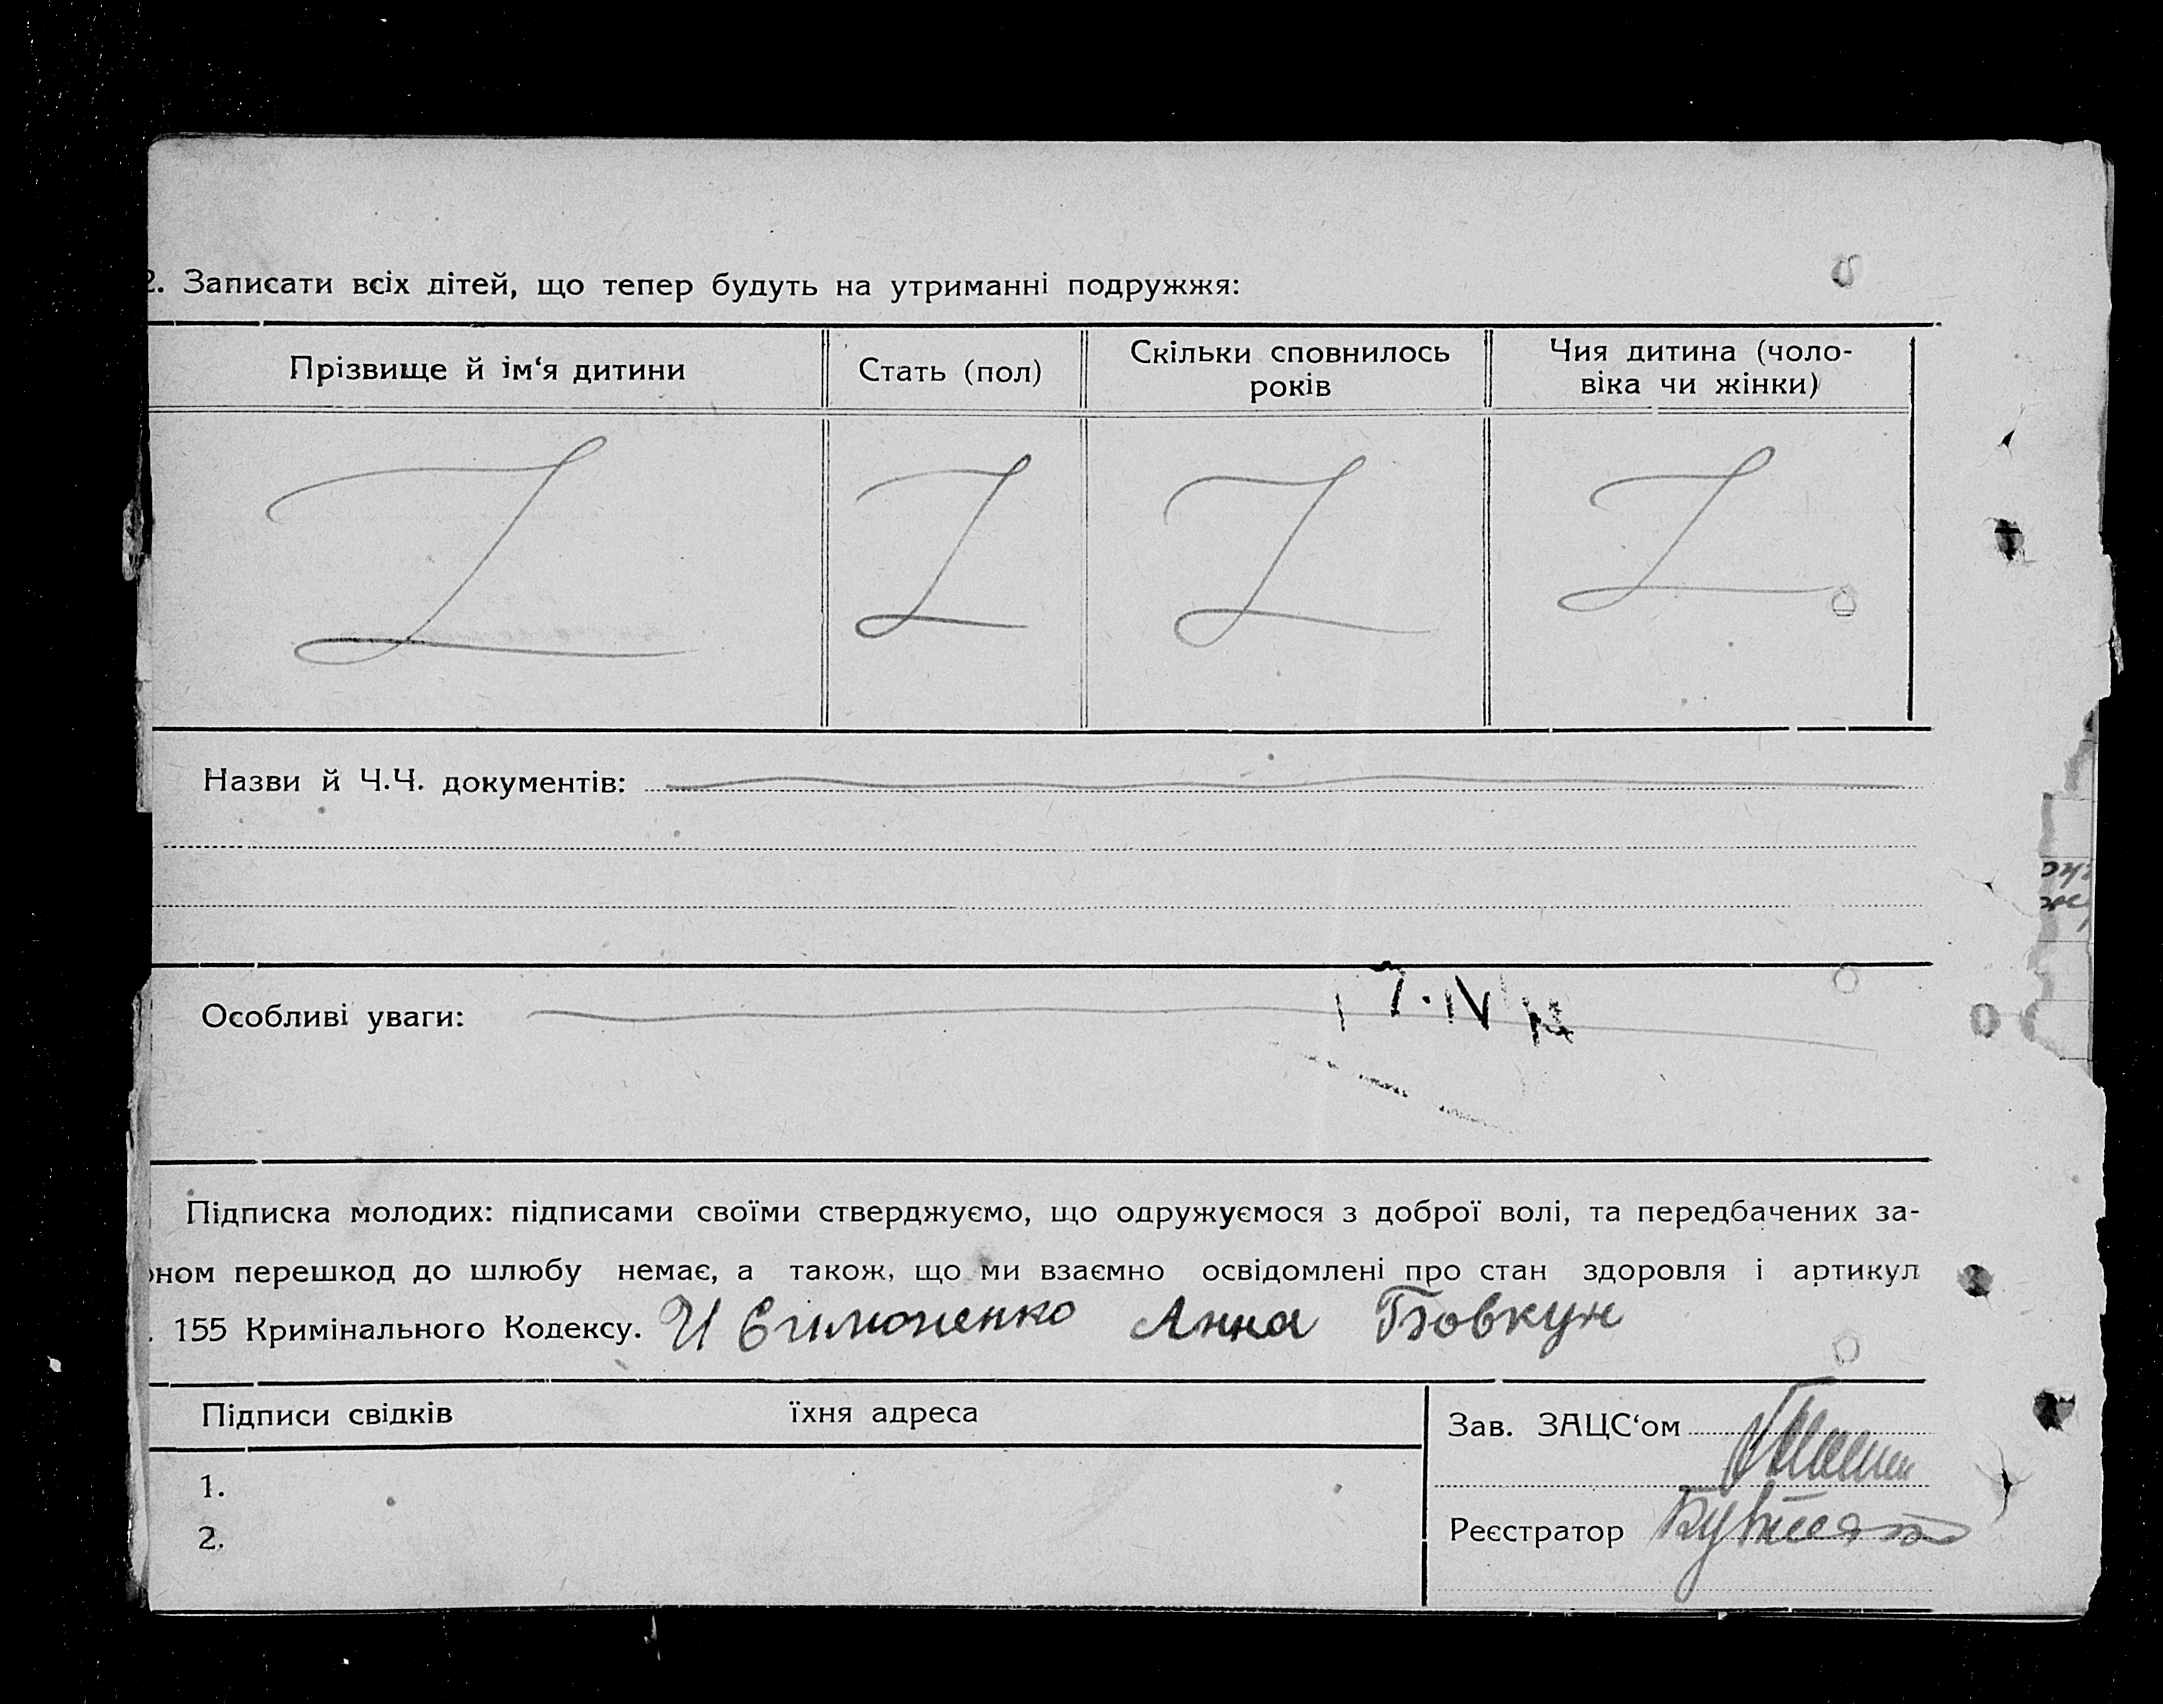 2. Записати всіх дітей, що тепер будуть на утриманні подружжя:
Прізвище й ім‘я дитини
Стать (пол)
Скільки сповнилось
років
Чия дитина (чоло-
віка чи жінки)
Z Z Z Z
Назви й Ч.Ч. документів:
Особливі уваги:
17.IV
Підписка молодих: підписами своїми стверджуємо, що одружуємося з доброї волі, та передбачених за-
оном перешкод до шлюбу немає, а також, що ми взаємно освідомлені про стан здоровля і артикул
. 155 Кримінального Кодексу. И Симоненко Анна Бовкун
Підписи свідків їхня адреса
Зав. ЗАЦС‘ом
1.
2.
Реєстратор